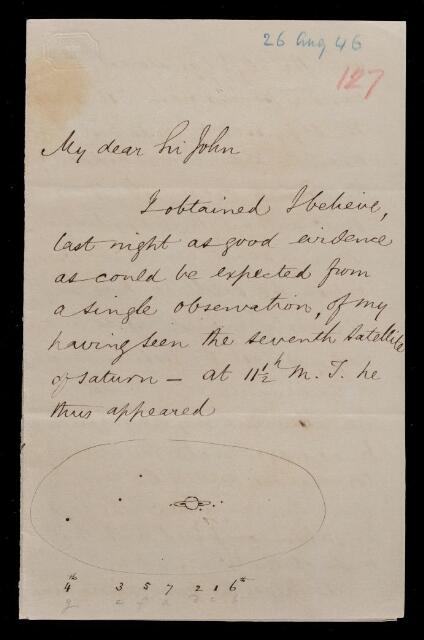 26 Aug 46
127
My dear Sir John
I obtained I believe,
last night as good evidence
as could be expected from
a single observation, of my
having seen the seventh Satellite
of Saturn — at 11½ʰ M. T. he
thus appeared
4ᵗʰ 3 5 7 2 1 6ᵗʰ